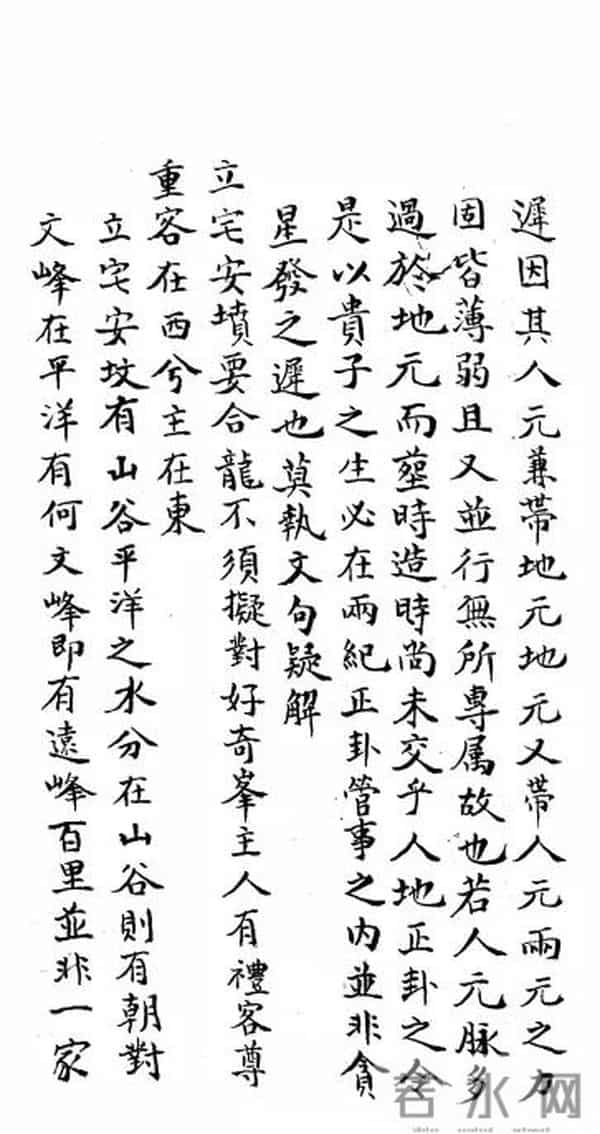 遲因其人元兼帶地元地元又帶人元兩元之力
固皆薄弱且又並行無所專属故也若人元脉多
過於地元而塟時造時尚未交乎人地正卦之令
是以貴子之生必在兩紀正卦管事之内並非貪
星發之遲也莫執文句疑解
立宅安墳要合龍不須擬對好奇峯主人有禮客尊
重客在西兮主在東
立宅安坟有山谷平洋之水分在山谷則有朝對
文峰在平洋有何文峰即有遠峰百里並非一家
若水网